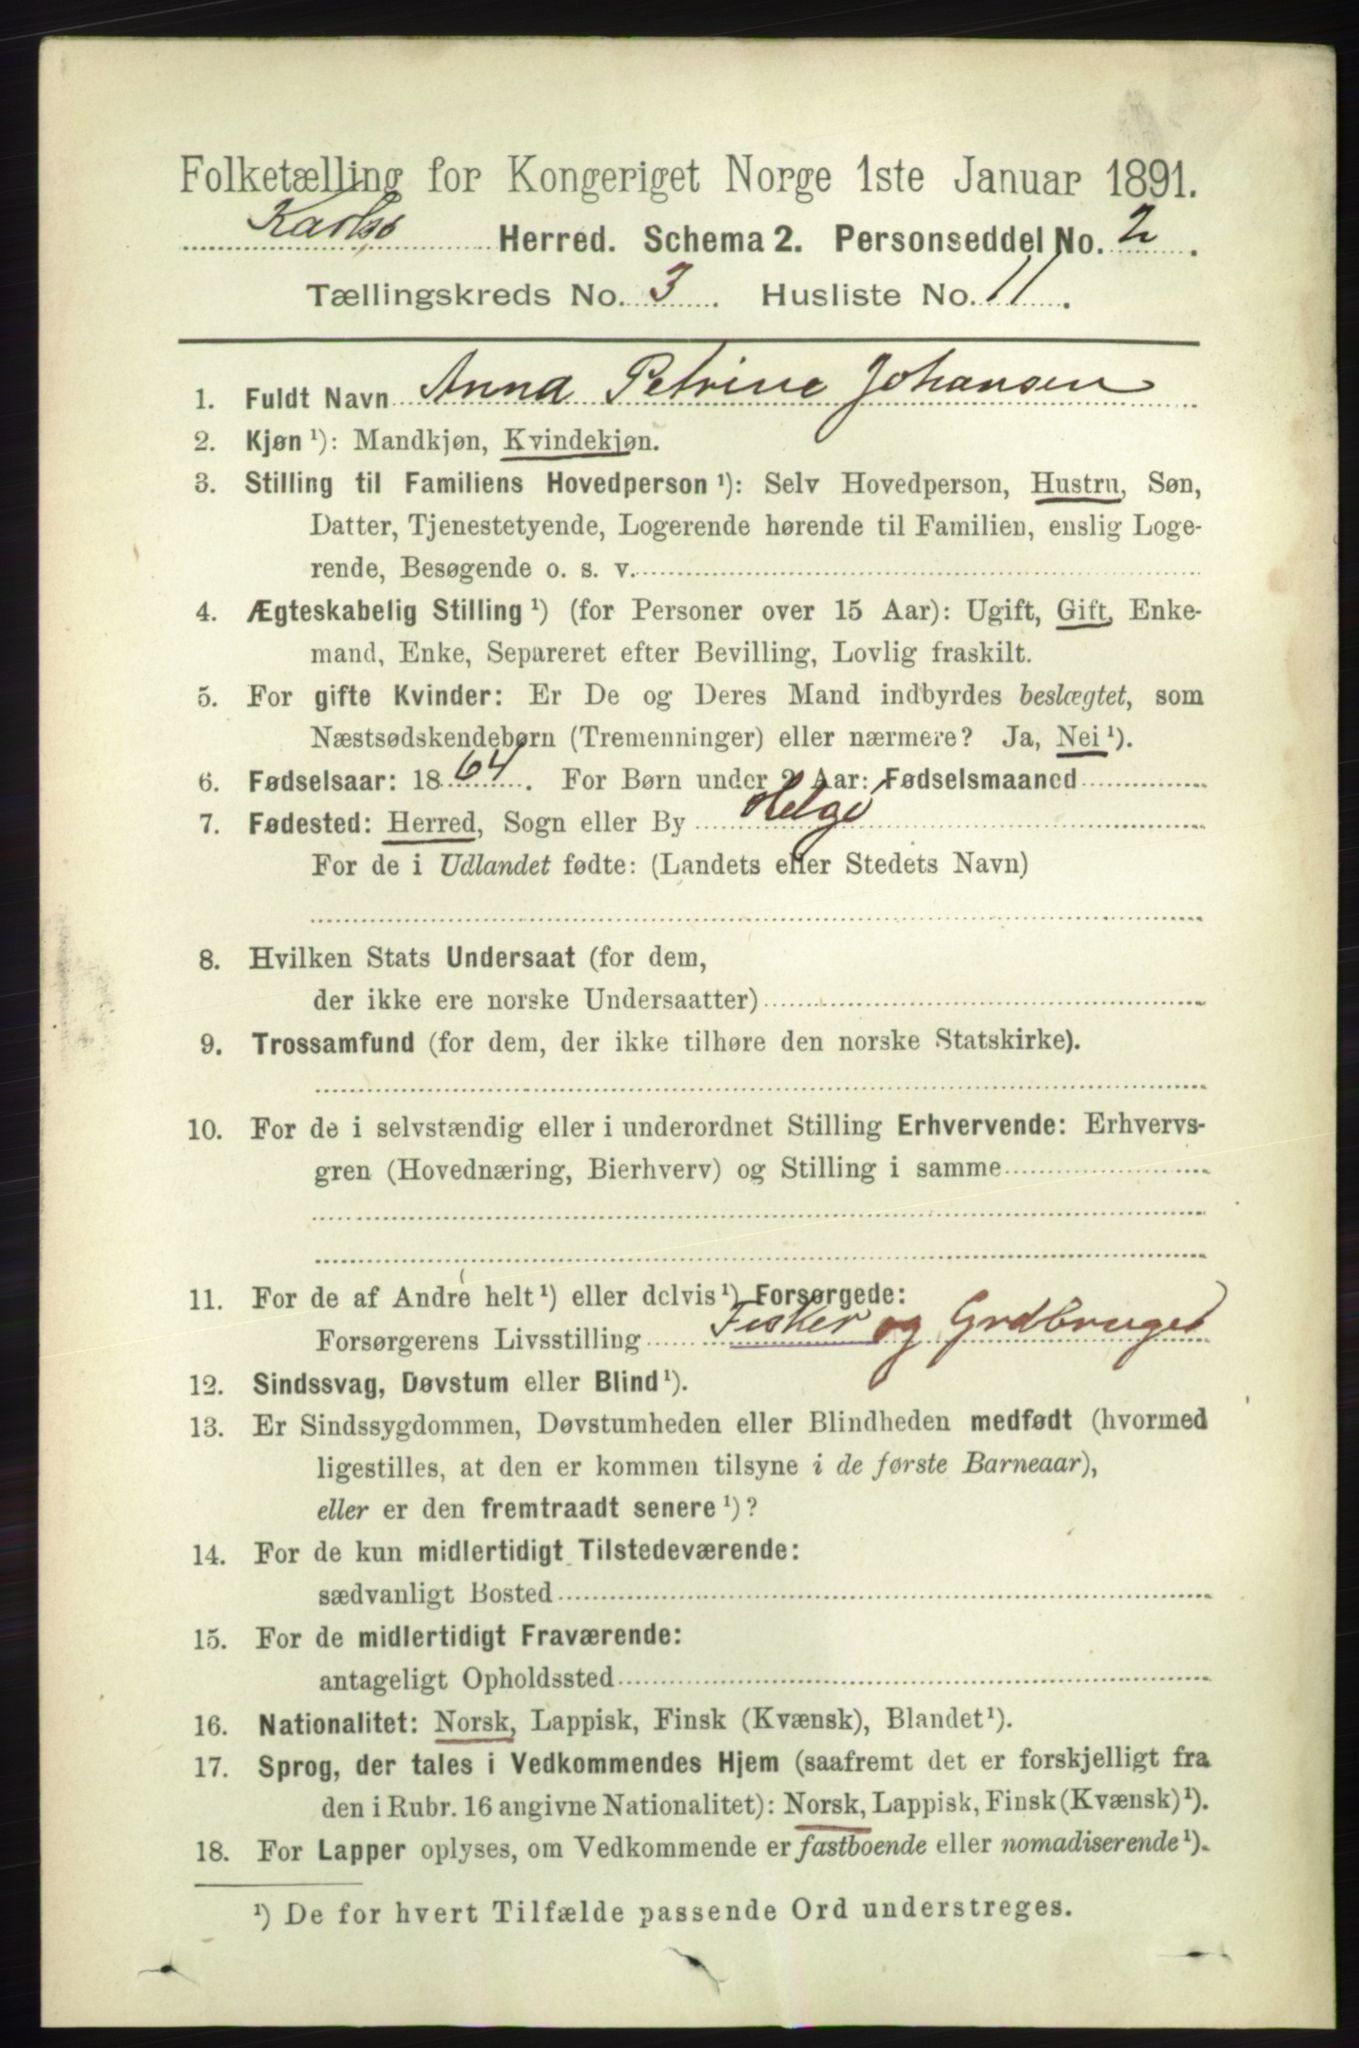 Folketælling for Kongeriget Norge 1ste Januar 1891.
Karlsø Herred. Schema 2. Personseddel No. 2.
Tællingskreds No. 3. Husliste No. 11.
1. Fuldt Navn Anna Petrine Johansen
2. Kjøn ¹): Mandkjøn, Kvindekjøn.
3. Stilling til Familiens Hovedperson ¹): Selv Hovedperson, Hustru, Søn,
Datter, Tjenestetyende, Logerende hørende til Familien, enslig Loge-
rende, Besøgende o. s. v.
4. Ægteskabelig Stilling ¹) (for Personer over 15 Aar): Ugift, Gift, Enke-
mand, Enke, Separeret efter Bevilling, Lovlig fraskilt.
5. For gifte Kvinder: Er De og Deres Mand indbyrdes beslægtet, som
Næstsødskendebørn (Tremenninger) eller nærmere? Ja, Nei ¹).
6. Fødselsaar: 1864. For Børn under 2 Aar: Fødselsmaaned
7. Fødested: Herred, Sogn eller By Helgø
For de i Udlandet fødte: (Landets eller Stedets Navn)
8. Hvilken Stats Undersaat (for dem,
der ikke ere norske Undersaatter)
9. Trossamfund (for dem, der ikke tilhøre den norske Statskirke).
10. For de i selvstændig eller i underordnet Stilling Erhvervende: Erhvervs-
gren (Hovednæring, Bierhverv) og Stilling i samme
11. For de af Andre helt ¹) eller delvis ¹) Forsørgede:
Forsørgerens Livsstilling Fisker og Grdbruger
12. Sindssvag, Døvstum eller Blind ¹).
13. Er Sindssygdommen, Døvstumheden eller Blindheden medfødt (hvormed
ligestilles, at den er kommen tilsyne i de første Barneaar),
eller er den fremtraadt senere ¹)?
14. For de kun midlertidigt Tilstedeværende:
sædvanligt Bosted
15. For de midlertidigt Fraværende:
antageligt Opholdssted
16. Nationalitet: Norsk, Lappisk, Finsk (Kvænsk), Blandet ¹).
17. Sprog, der tales i Vedkommendes Hjem (saafremt det er forskjelligt fra
den i Rubr. 16 angivne Nationalitet): Norsk, Lappisk, Finsk (Kvænsk) ¹).
18. For Lapper oplyses, om Vedkommende er fastboende eller nomadiserende ¹).
¹) De for hvert Tilfælde passende Ord understreges.